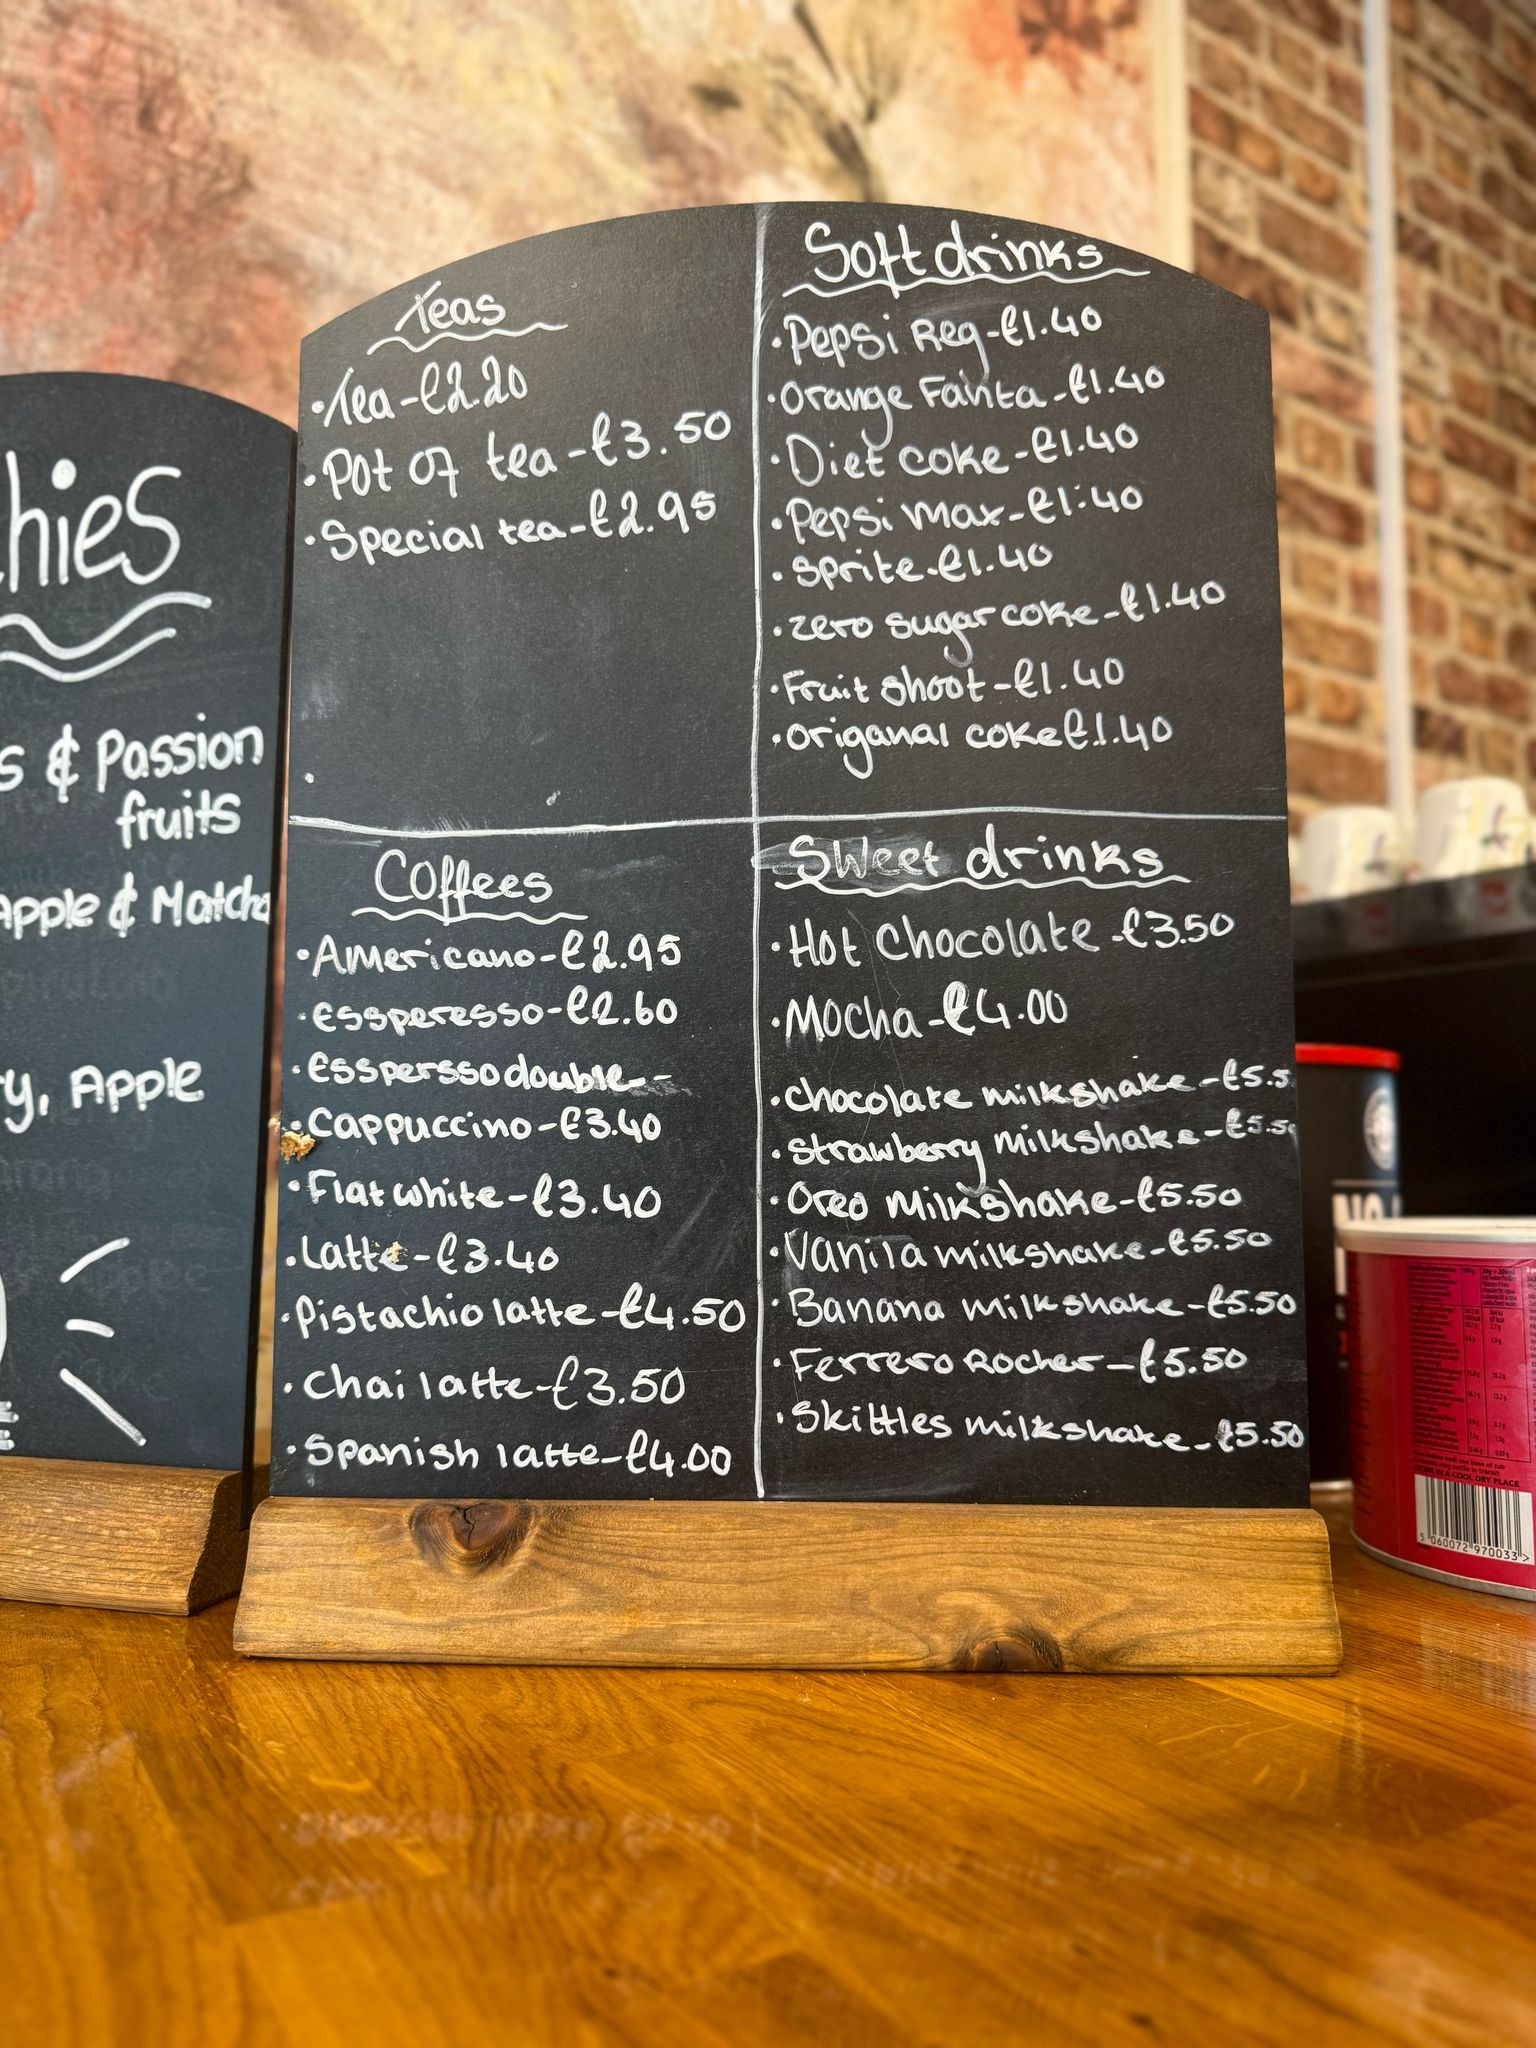 hies
s & Passion
fruits
apple & Matcha
y, Apple
Teas
• Tea - £2.20
• Pot of tea - £3.50
• Special tea - £2.95
Soft drinks
• Pepsi Reg - £1.40
• Orange Fanta - £1.40
• Diet coke - £1.40
• Pepsi Max - £1.40
• Sprite - £1.40
• zero sugar coke - £1.40
• Fruit shoot - £1.40
• Origanal coke £1.40
Coffees
• Americano - £2.95
• Essperesso - £2.60
• Esspersso double -
• Cappuccino - £3.40
• Flat white - £3.40
• Latte - £3.40
• Pistachio latte - £4.50
• Chai latte - £3.50
• Spanish latte - £4.00
Sweet drinks
• Hot Chocolate - £3.50
• Mocha - £4.00
• chocolate milkshake - £5.5
• Strawberry milkshake - £5.50
• Oreo milkshake - £5.50
• Vanila milkshake - £5.50
• Banana milkshake - £5.50
• Ferrero Rocher - £5.50
• Skittles milkshake - £5.50
STORE IN A COOL DRY PLACE
5 060072 970033 >